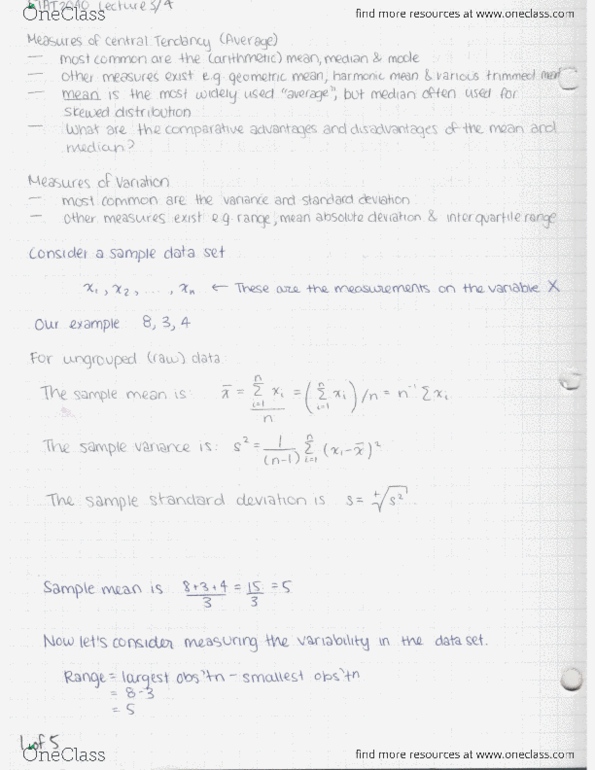 STAT2040 Lecture 3/4
OneClass
find more resources at www.oneclass.com
Measures of central Tendancy (Average)
— most common are the (arithmetic) mean, median & mode
— other measures exist e.g. geometric mean, harmonic mean & various trimmed
— mean is the most widely used "average", but median often used for
skewed distribution
— What are the comparative advantages and disadvantages of the mean and
median?
Measures of Variation
— most common are the variance and standard deviation
— other measures exist e.g. range, mean absolute deviation & interquartile range
Consider a sample data set
x₁, x₂, ..., xₙ ← These are the measurements on the variable X
Our example 8, 3, 4
For ungrouped (raw) data:
The sample mean is: x̄ = Σⁿᵢ₌₁ xᵢ / n = (Σⁿᵢ₌₁ xᵢ)/n = n⁻¹ Σxᵢ
The sample variance is: s² = 1/(n-1) Σⁿᵢ₌₁ (xᵢ-x̄)²
The sample standard deviation is s = +√s²
Sample mean is 8+3+4/3 = 15/3 = 5
Now let's consider measuring the variability in the data set.
Range = largest obs'tn - smallest obs'tn
= 8-3
= 5
1 of 5
OneClass
find more resources at www.oneclass.com